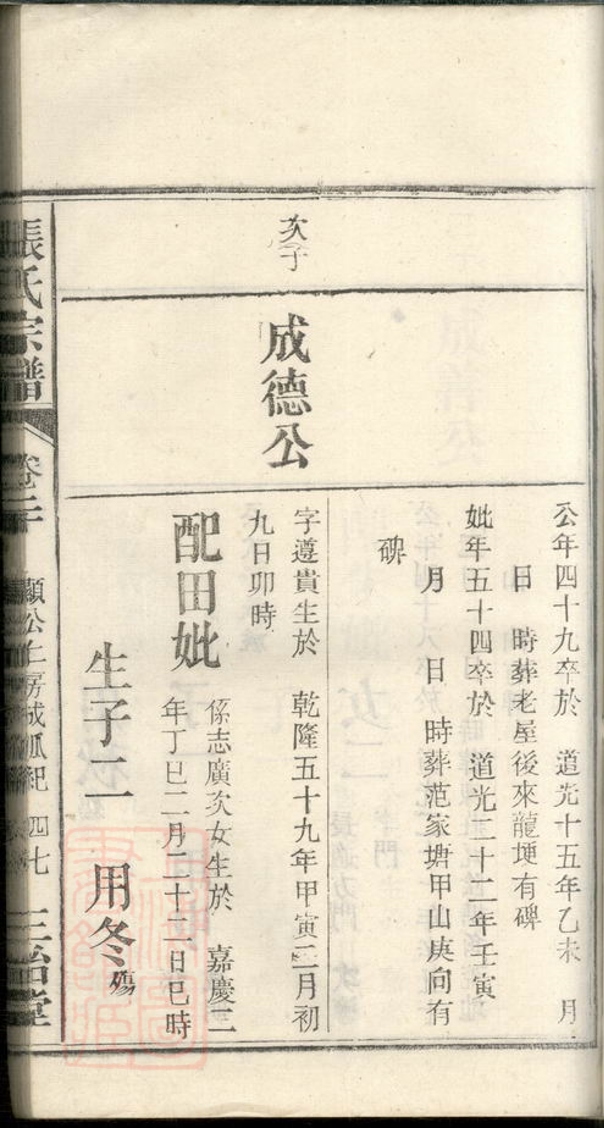 公年四十九卒於 道光十五年乙未 月
日 時葬老屋後來龍埂有碑
妣年五十四卒於 道光二十二年壬寅
月 日 時葬范家塘甲山庚向有
碑
次子
成德公
字遵貴生於 乾隆五十九年甲寅二月初
九日卯時
配田妣
係志廣次女生於 嘉慶二
年丁巳二月二十二日巳時
生子二 用冬殤
張氏宗譜 卷二 顯公仁房成派紀 四七